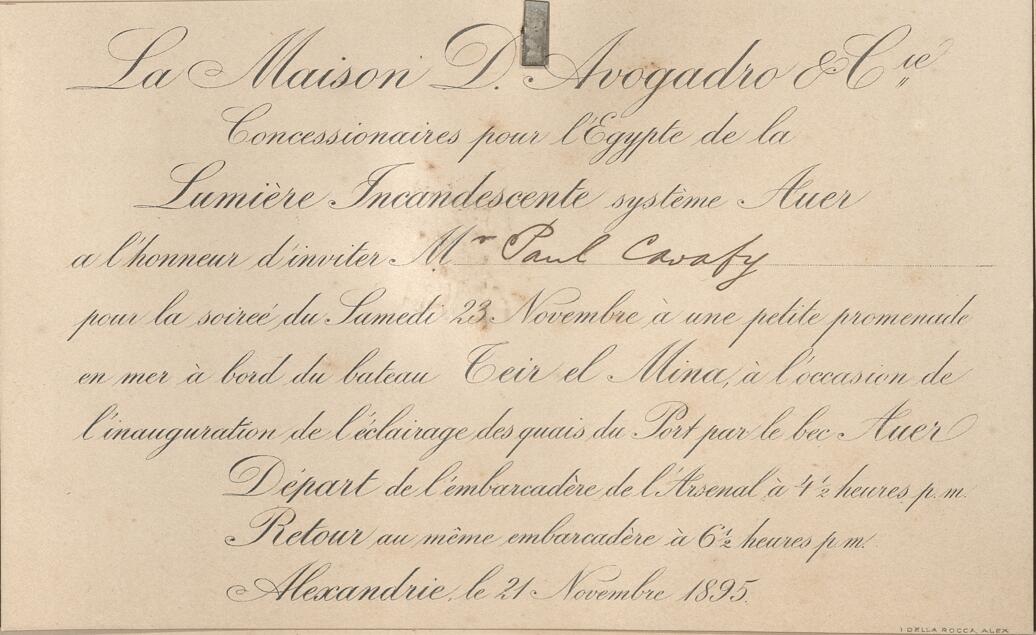 La Maison D. Avogadro & Cie
Concessionaires pour l'Egypte de la
Lumière Incandescente système Auer
a l'honneur d'inviter Mr Paul Cavafy
pour la soireé du Samedi 23 Novembre à une petite promenade
en mer à bord du bateau Teir el Mina, à l'occasion de
l'inauguration de l'éclairage des quais du Port par le bec Auer
Départ de l'embarcadère de l'Arsenal à 4 1/2 heures p.m.
Retour au même embarcadère à 6 1/2 heures p.m.
Alexandrie, le 21 Novembre 1895.
I. DELLA ROCCA, ALEX.